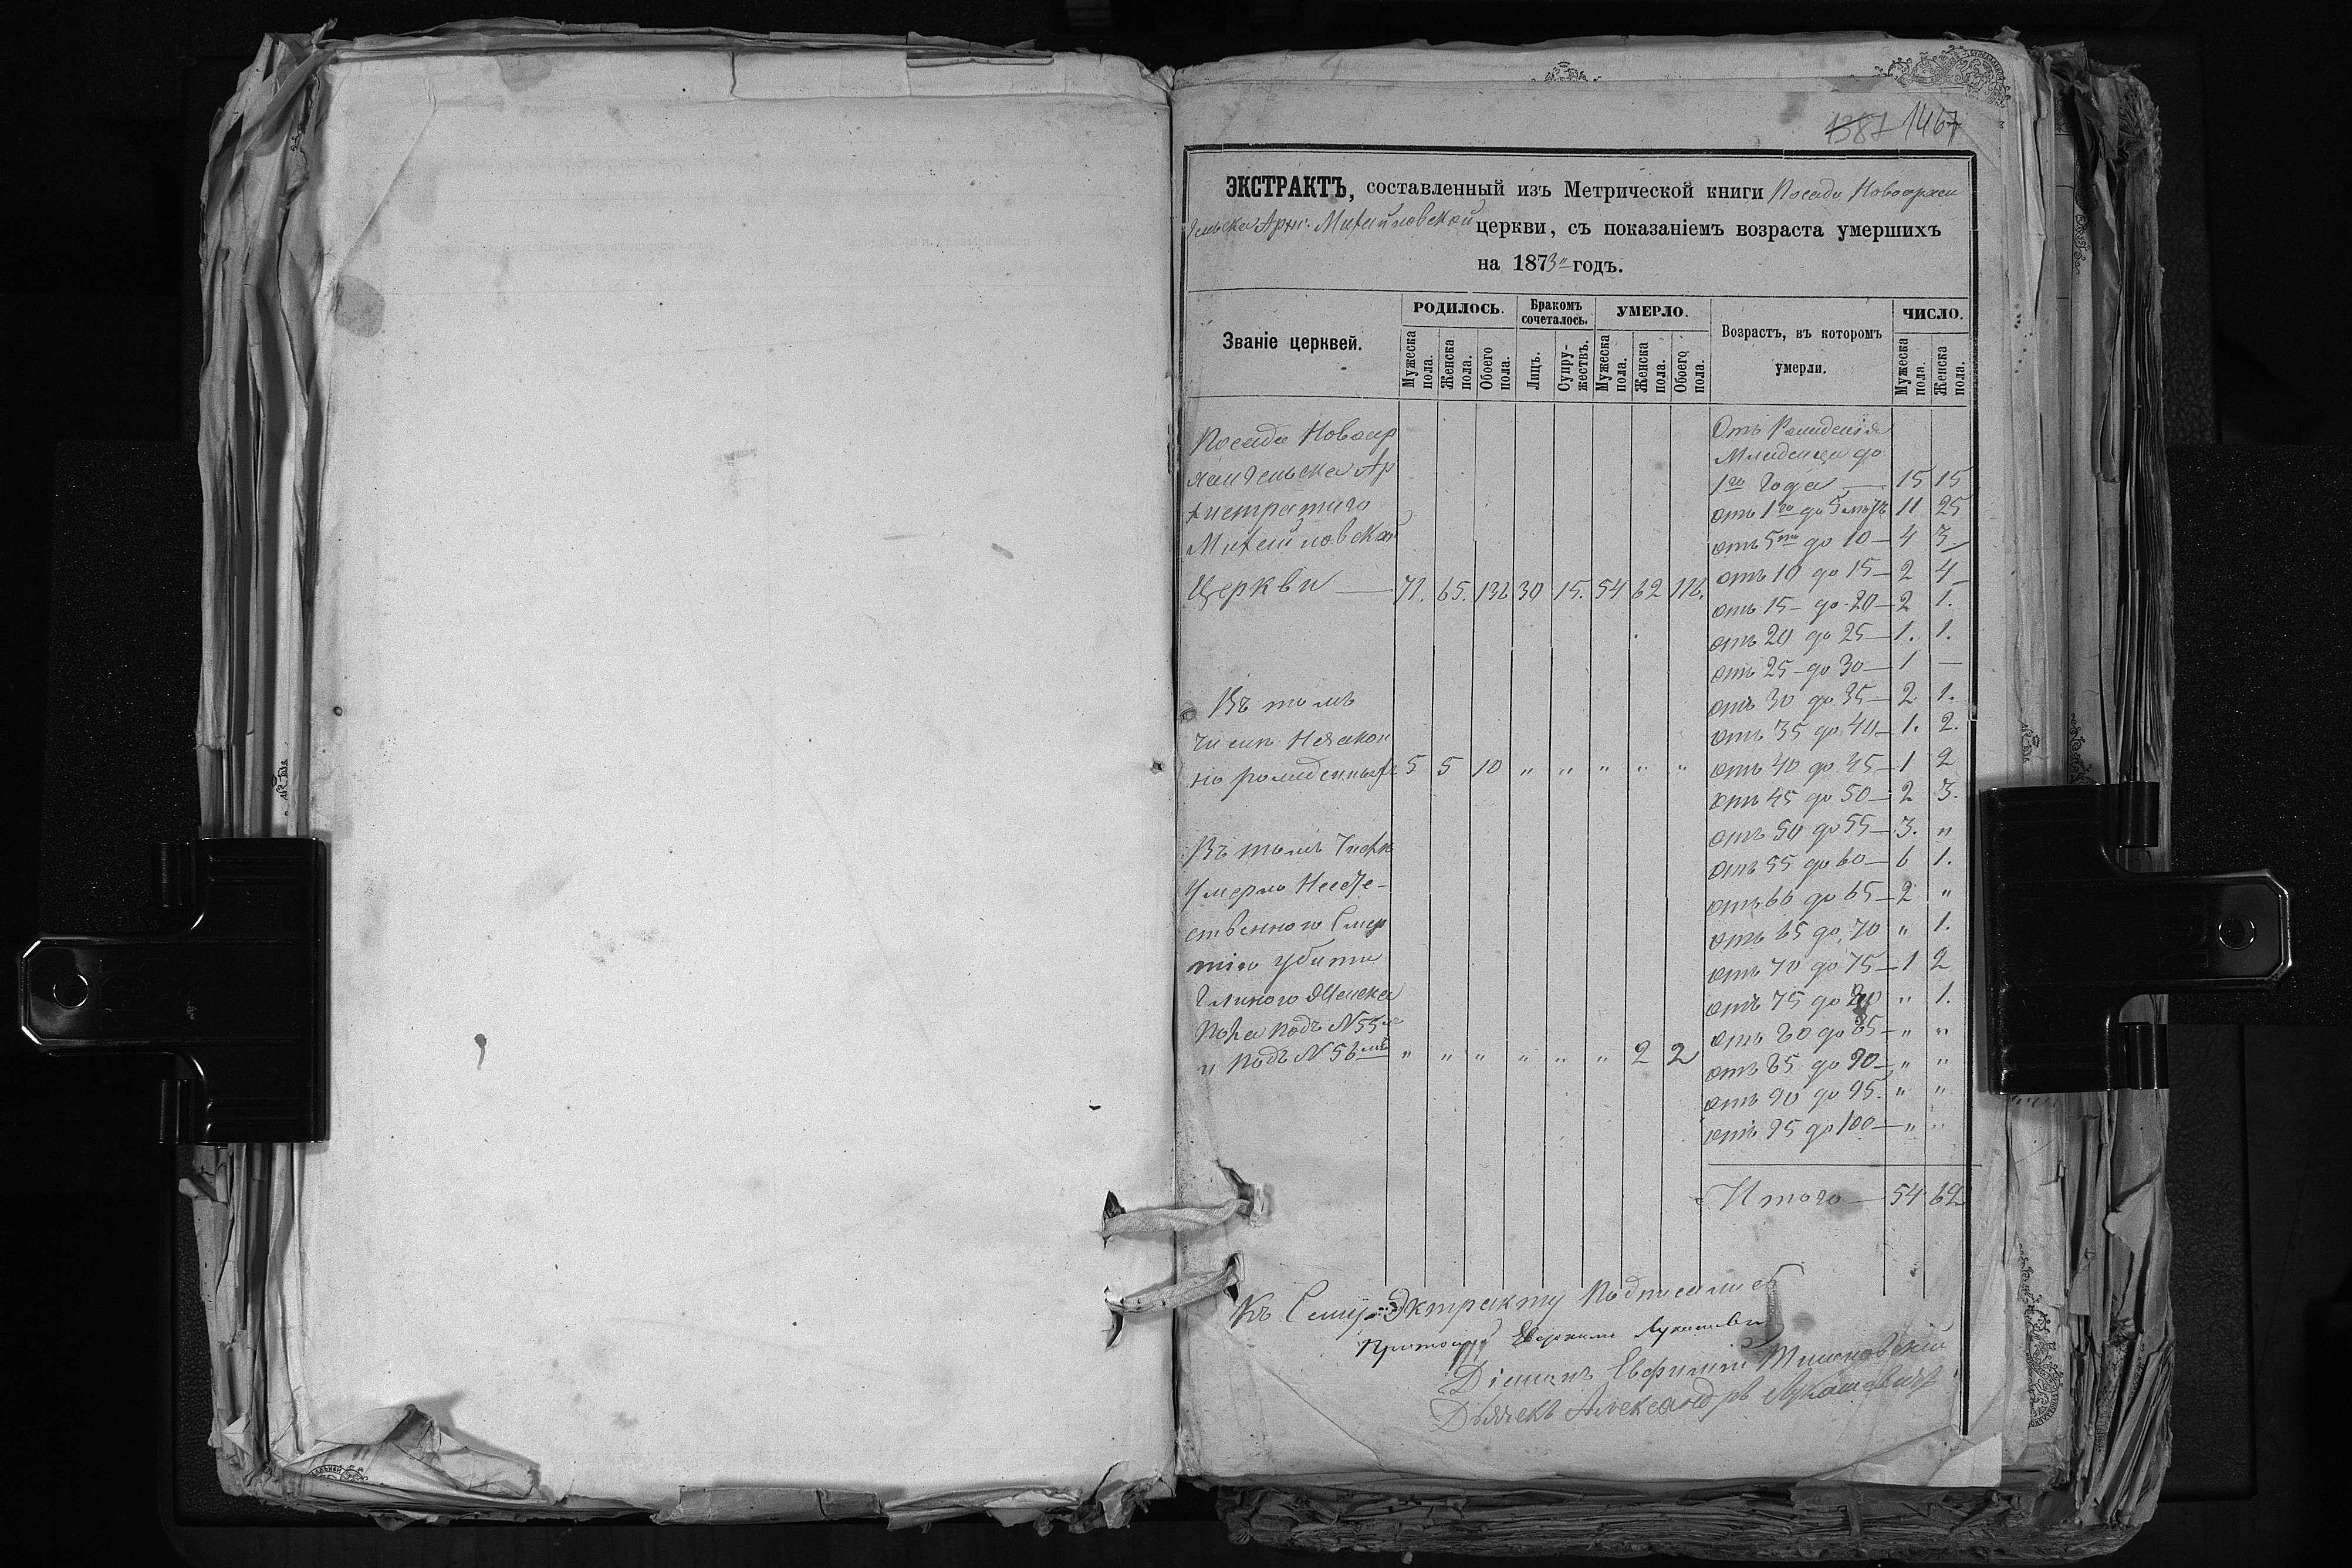 1387 1467
ЭКСТРАКТЪ, составленный изъ Метрической книги Посада Новоархан
гельска Арх. Михайловской церкви, съ показаніемъ возраста умершихъ
на 1873 годъ.
Званіе церквей.
РОДИЛОСЬ.
Мужеска пола.
Женска пола.
Обоего пола.
Бракомъ сочеталось.
Лицъ.
Супружествъ.
УМЕРЛО.
Мужеска пола.
Женска пола.
Обоего пола.
Возрастъ, въ которомъ умерли.
ЧИСЛО.
Мужеска пола.
Женска пола.
Посада Новоар
хангельска Ар
хистратиго
Михайловской
Церкви — 71. 65. 136 30 15. 54 62 116.
Въ томъ
числѣ Незакон
но рожденныхъ 5 5 10 " " " " "
Въ томъ числѣ
Умерло Неесте-
ственного Смер
тію убиты
Женска
Пола подъ N 55
и подъ N 56мъ " " " " " " 2 2
Отъ Рожденія
Младенца до
1го Года — 15 15
отъ 1го до 5 лѣтъ 11 25
отъ 5ти до 10 — 4 3
отъ 10 до 15 — 2 4
отъ 15 до 20 — 2 1.
отъ 20 до 25 — 1. 1.
отъ 25 до 30 — 1 —
отъ 30 до 35 — 2 1.
отъ 35 до 40 — 1. 2.
отъ 40 до 45 — 1 2
отъ 45 до 50 — 2 3.
отъ 50 до 55 — 3. "
отъ 55 до 60 — 6 1.
отъ 60 до 65 — 2 "
отъ 65 до 70 " 1.
отъ 70 до 75 — 1 2
отъ 75 до 80 " 1.
отъ 80 до 85 — " "
отъ 85 до 90 — " "
отъ 90 до 95. " "
отъ 95 до 100 — " "
Итого — 54 62
Къ Сему Эктракту Подписались
Діаконъ Евфимій
Дьячекъ Александръ Лукашевичъ